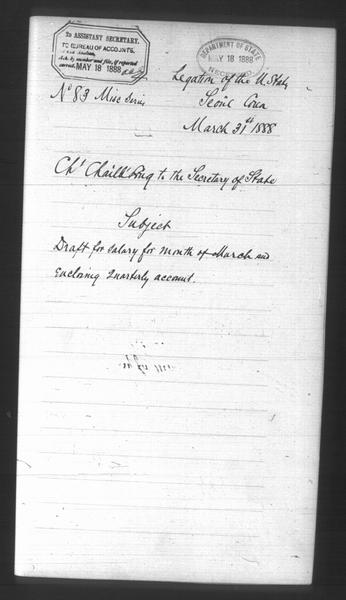 To ASSISTANT SECRETARY.
TO BUREAU OF ACCOUNTS,
Ack. by number and file, if reported correct.
MAY 18 1888
DEPARTMENT OF STATE
MAY 18 1888
RECEIVED
Legation of the U. States
Nº 83 Misc Series
Seoul Corea
March 31st 1888
Ch' Chaillé Long to the Secretary of State
Subject
Draft for salary for month of March and
Enclosing Quarterly account.